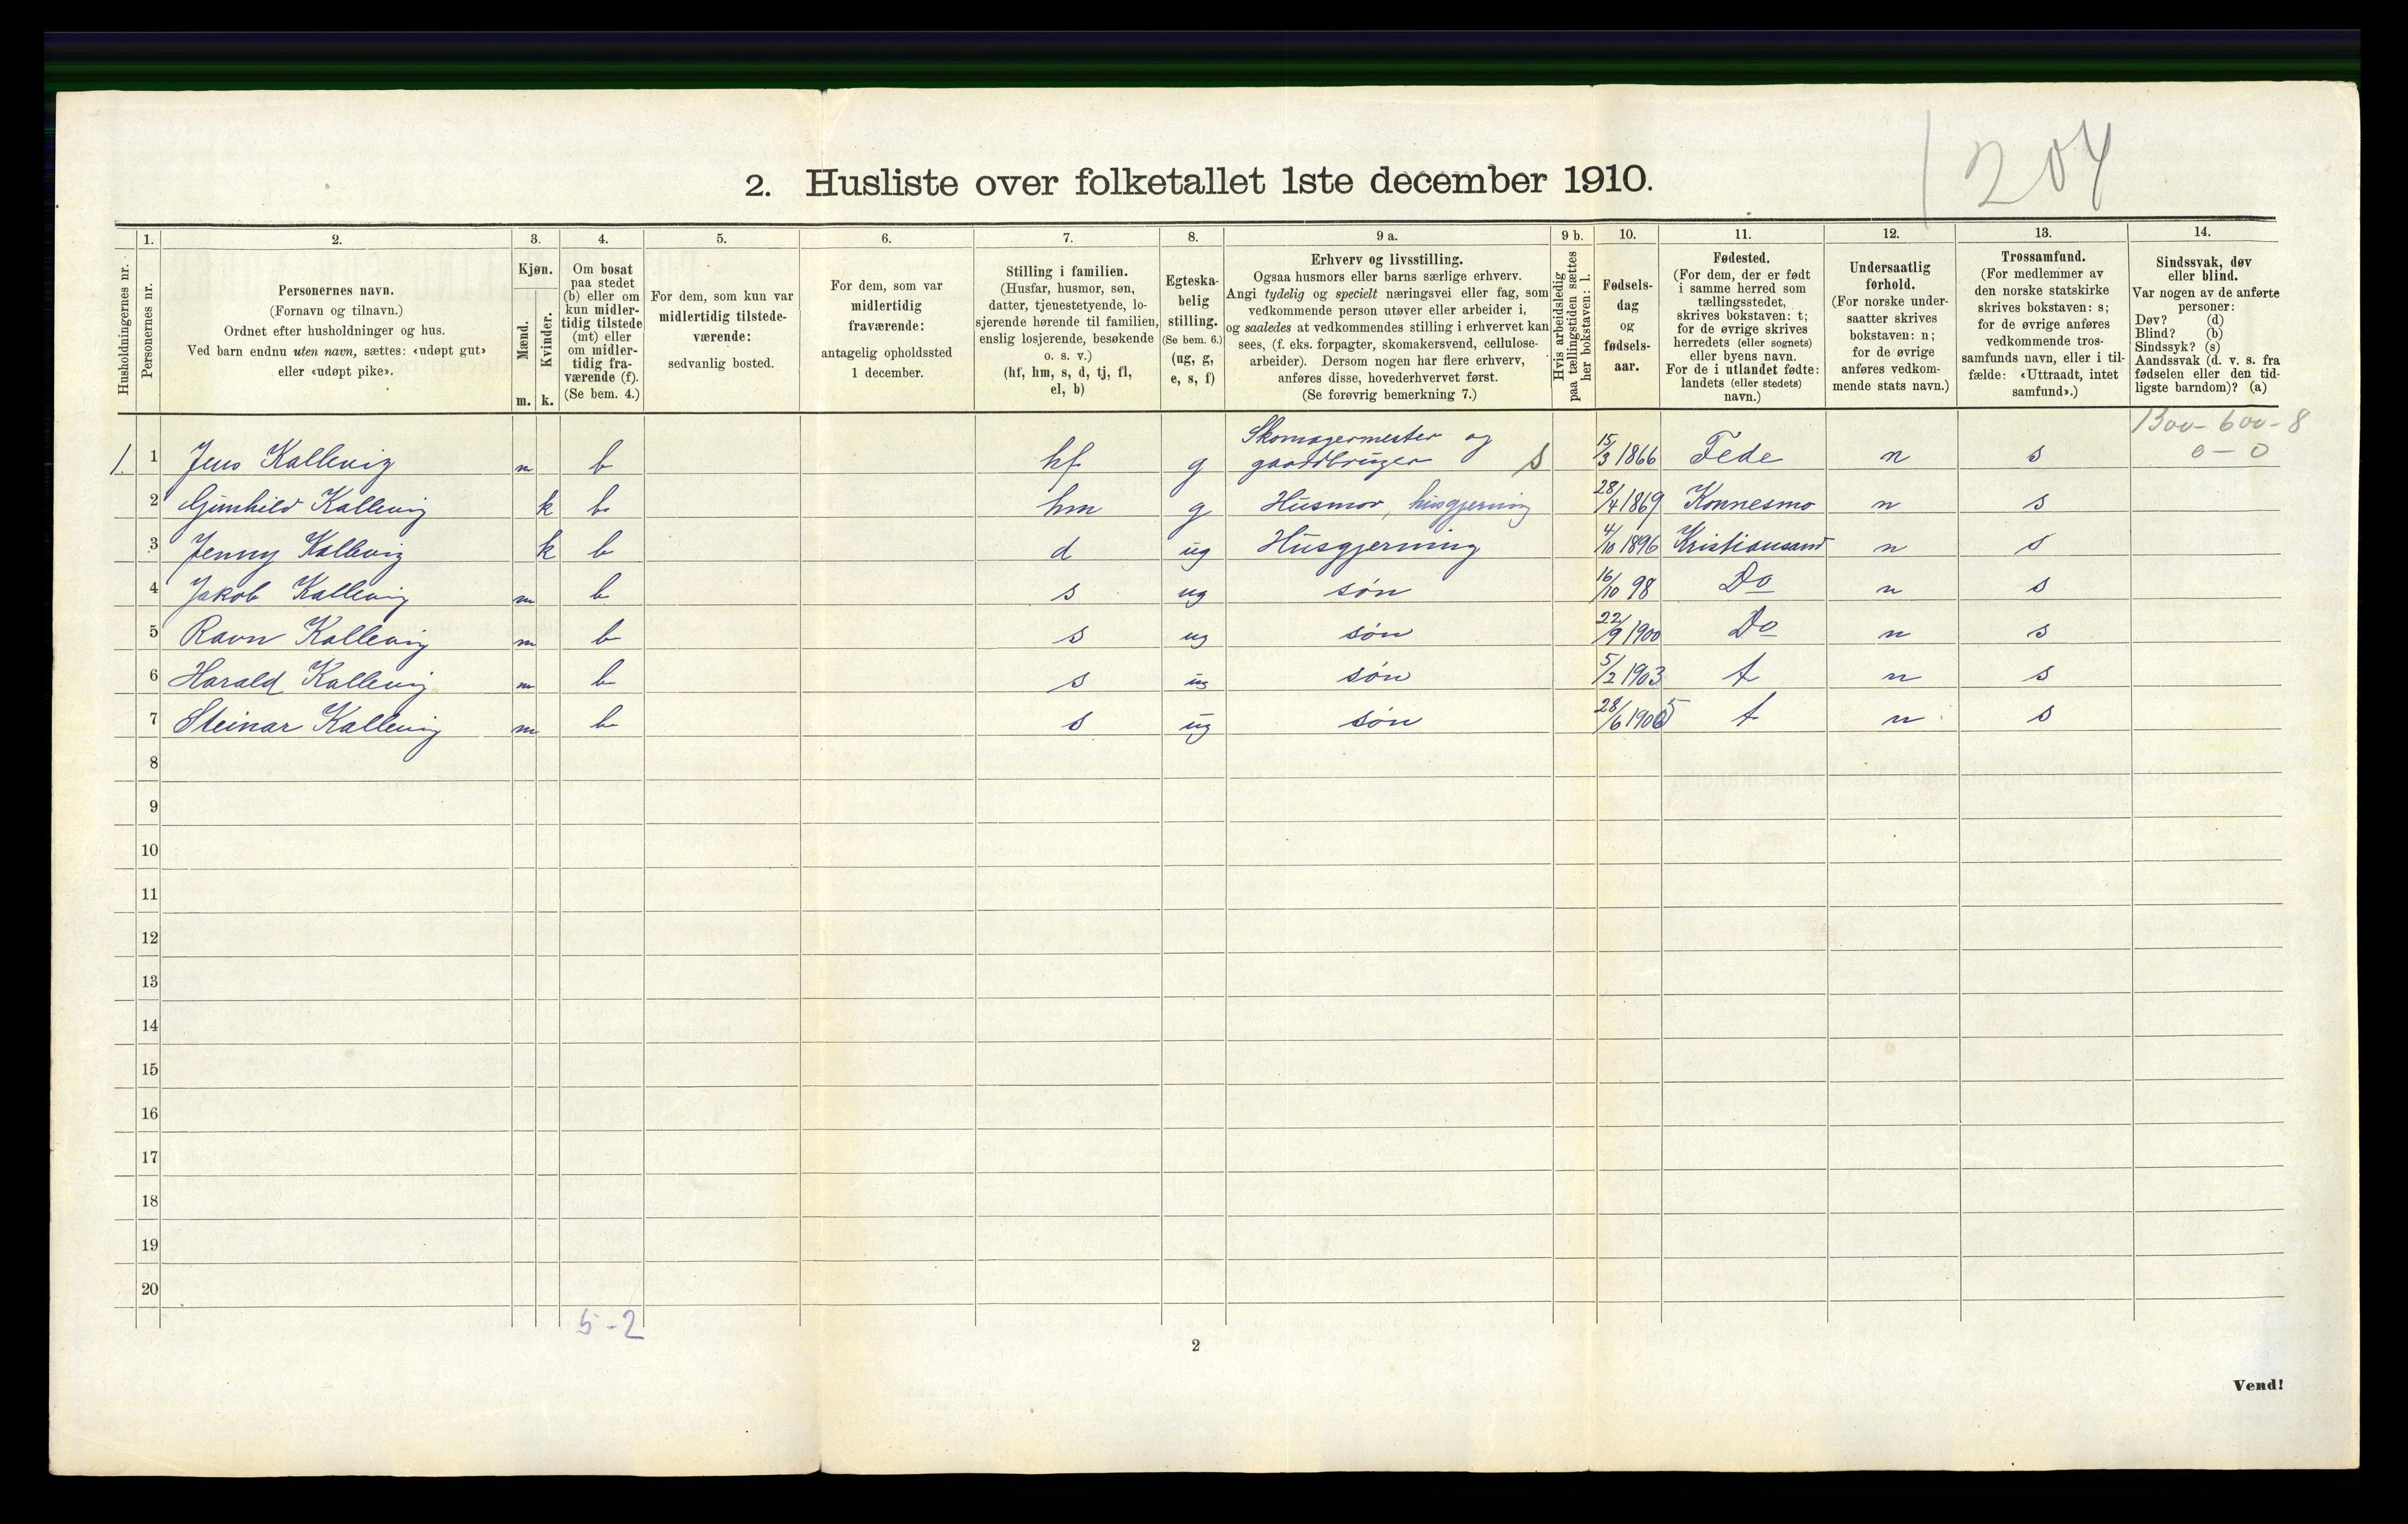 1204
2. Husliste over folketallet 1ste december 1910.
Husholdningernes nr. | 1. Personernes nr. | 2. Personernes navn. (Fornavn og tilnavn.) Ordnet efter husholdninger og hus. Ved barn endnu uten navn, sættes: «udøpt gut» eller «udøpt pike». | 3. Kjøn. Mænd. m. Kvinder. k. | 4. Om bosat paa stedet (b) eller om kun midler-tidig tilstede (mt) eller om midler-tidig fra-værende (f). (Se bem. 4.) | 5. For dem, som kun var midlertidig tilstede-værende: sedvanlig bosted. | 6. For dem, som var midlertidig fraværende: antagelig opholdssted 1 december. | 7. Stilling i familien. (Husfar, husmor, søn, datter, tjenestetyende, lo-sjerende hørende til familien, enslig losjerende, besøkende o. s. v.) (hf, hm, s, d, tj, fl, el, b) | 8. Egteska-belig stilling. (Se bem. 6.) (ug, g, e, s, f) | 9 a. Erhverv og livsstilling. Ogsaa husmors eller barns særlige erhverv. Angi tydelig og specielt næringsvei eller fag, som vedkommende person utøver eller arbeider i, og saaledes at vedkommendes stilling i erhvervet kan sees, (f. eks. forpagter, skomakersvend, cellulose-arbeider). Dersom nogen har flere erhverv, anføres disse, hovederhvervet først. (Se forøvrig bemerkning 7.) | 9 b. Hvis arbeidsledig paa tællingstiden sættes her bokstaven: l. | 10. Fødsels-dag og fødsels-aar. | 11. Fødested. (For dem, der er født i samme herred som tællingsstedet, skrives bokstaven: t; for de øvrige skrives herredets (eller sognets) eller byens navn. For de i utlandet fødte: landets (eller stedets) navn.) | 12. Undersaatlig forhold. (For norske under-saatter skrives bokstaven: n; for de øvrige anføres vedkom-mende stats navn.) | 13. Trossamfund. (For medlemmer av den norske statskirke skrives bokstaven: s; for de øvrige anføres vedkommende tros-samfunds navn, eller i til-fælde: «Uttraadt, intet samfund».) | 14. Sindssvak, døv eller blind. Var nogen av de anførte personer: Døv? (d) Blind? (b) Sindssyk? (s) Aandssvak (d. v. s. fra fødselen eller den tid-ligste barndom)? (a)
1300-600-8
0-0
1. 1 Jens Kallevig m b hf g Skomagermester og gaardbruger S 15/3 1866 Fede n s
2 Gunhild Kallevig k b hm g Husmor, husgjerning 28/4 1869 Konnesmo n s
3 Jenny Kallevig k b d ug Husgjerning 4/10 1896 Kristiansand n s
4 Jakob Kallevig m b s ug søn 16/10 98 Do n s
5 Ravn Kallevig m b s ug søn 22/9 1900 Do n s
6 Harald Kallevig m b s ug søn 5/2 1903 t n s
7 Steinar Kallevig m b s ug søn 28/6 1905 t n s
8
9
10
11
12
13
14
15
16
17
18
19
20
5-2
2
Vend!